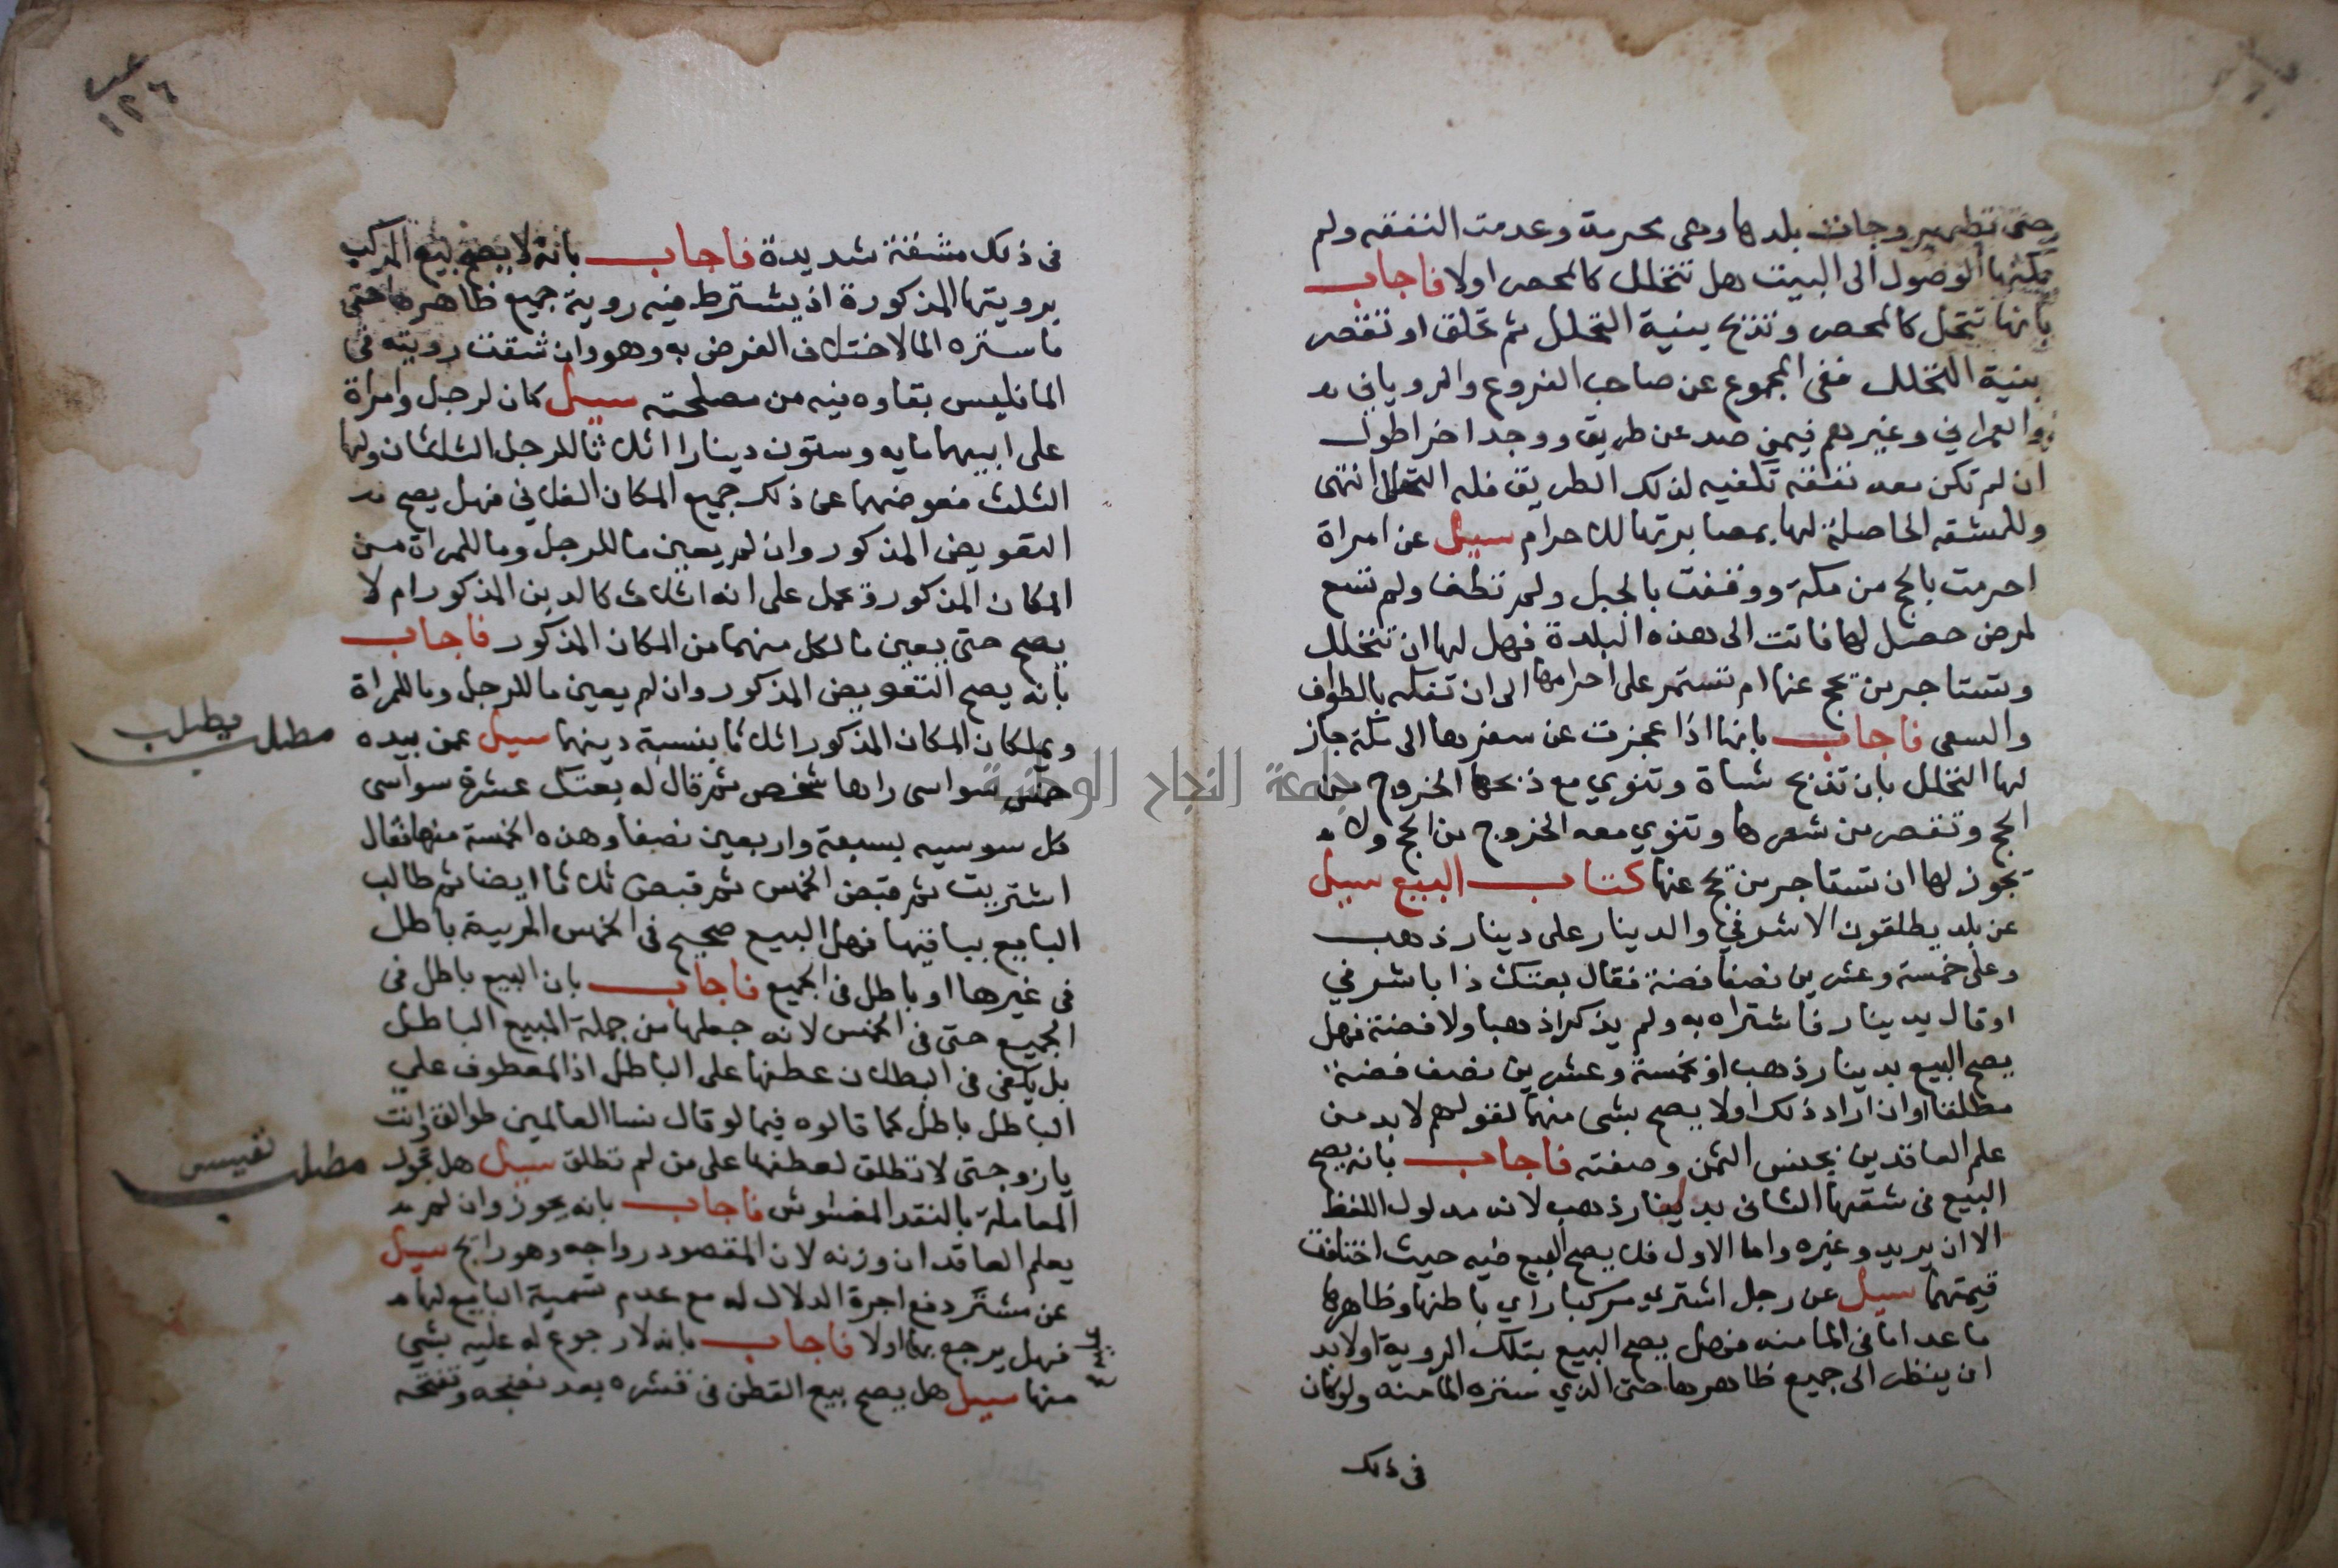 حتى تطهر وجات بلدها وهى محرمة وعدمت النفقه ولم
يمكنها الوصول الى البيت هل تتحلل كالمحصر اولا فاجاب
بانها تتحلل كالمحصر وتذبح بنية التحلل ثم تحلق او تقصر
بنية التحلل ففى المجموع عن صاحب الفروع والرويانى
والعمرانى وغيرهم فيمن صد عن طريق ووجد اخر اطول
ان لم تكن معه نفقة تكفيه لذلك الطريق فله التحلل انتهى
وللمشقه الحاصلة لها بمصابرتها للاحرام سيل عن امراة
احرمت بالحج من مكة ووقفت بالجبل ولم تطف ولم تسع
لمرض حصل لها فاتت الى هذه البلدة فهل لها ان تتحلل
وتستاجر من يحج عنها ام تستمر على احرامها الى ان تفكه بالطواف
والسعى فاجاب بانها اذا عجزت عن سفرها الى مكة جاز
لها التحلل بان تذبح شاة وتنوي مع ذبحها الخروج من
الحج وتقصر من شعرها وتنوي معه الخروج من الحج ولا
يجوز لها ان تستاجر من يحج عنها كتاب البيع سيل
عن بلد يطلقون الاشرفي والدينار على دينار ذهب
وعلى خمسة وعشرين نصفا فضة فقال بعتك ذا باشرفي
او قال بدينار فاشتراه به ولم يذكرا ذهبا ولا فضة فهل
يصح البيع بدينار ذهب او بخمسة وعشرين نصف فضة
مطلقا او ان اراد ذلك اولا يصح بشى منهما لقولهم لا بد من
علم العاقدين بجنس الثمن وصفته فاجاب بانه يصح
البيع فى شقها الثانى بدينار ذهب لانه مدلول اللفظ
الا ان يريد وغيره واما الاول فلا يصح البيع فيه حيث اختلفت
قيمتهما سيل عن رجل اشترى مركبا راي باطنها وظاهرها
ما عدا ما فى الما منه فهل يصح البيع بتلك الروية اولا بد
ان ينظر الى جميع ظاهرها حتى الذي ستره الما منه ولو كان
فى ذلك
١٢٦
فى ذلك مشقة شديدة فاجاب بانه لا يصح بيع المركب
برويتها المذكورة اذ يشترط فيه روية جميع ظاهرها حتى
ما ستره الما لاختلاف الغرض به وهو وان شقت رويته فى
الما فليس بقاوه فيه من مصلحته سيل كان لرجل وامراة
على ابيهما مايه وستون دينارا اثلاثا للرجل الثلثان ولها
الثلث فعوضهما عن ذلك جميع المكان الفلاني فهل يصح
التعويض المذكور وان لم يعين ما للرجل وما للمراة من
المكان المذكور ويحمل على انه اثلاث كالدين المذكور ام لا
يصح حتى يعين ما لكل منهما من المكان المذكور فاجاب
بانه يصح التعويض المذكور وان لم يعين ما للرجل وما للمراة
ويملكان المكان المذكور اثلاثا بنسبة دينهما سيل عمن بيده
خمس سواسى راها شخص ثم قال له بعتك عشرة سواسى
كل سوسيه بسبعة واربعين نصفا وهذه الخمسة منها فقال
اشتريت ثم قبض الخمس ثم قبض ثلاثا ايضا ثم طالب
البايع بباقيها فهل البيع صحيح فى الخمس المرية باطل
فى غيرها او باطل فى الجميع فاجاب بان البيع باطل فى
الجميع حتى فى الخمس لانه جعلها من جملة المبيع الباطل
بل يكفى فى البطلان عطفها على الباطل اذ المعطوف على
الباطل باطل كما قالوه فيما لو قال نسا العالمين طوالق وانت
يا زوجتى لا تطلق لعطفها على من لم تطلق سيل هل تجوز
المعاملة بالنقد المغشوش فاجاب بانه يجوز وان لم
يعلم العاقدان وزنه لان المقصود رواجه وهو رايج سيل
عن مشتر دفع اجرة الدلال له مع عدم تسمية البايع لها
فهل يرجع بها اولا فاجاب بانه لا رجوع له عليه بشي
منها سيل هل يصح بيع القطن فى قشره بعد نضجه وتفتحه
مطلب
مطلب
مطلب نفيس
جامعة النجاح الوطنية